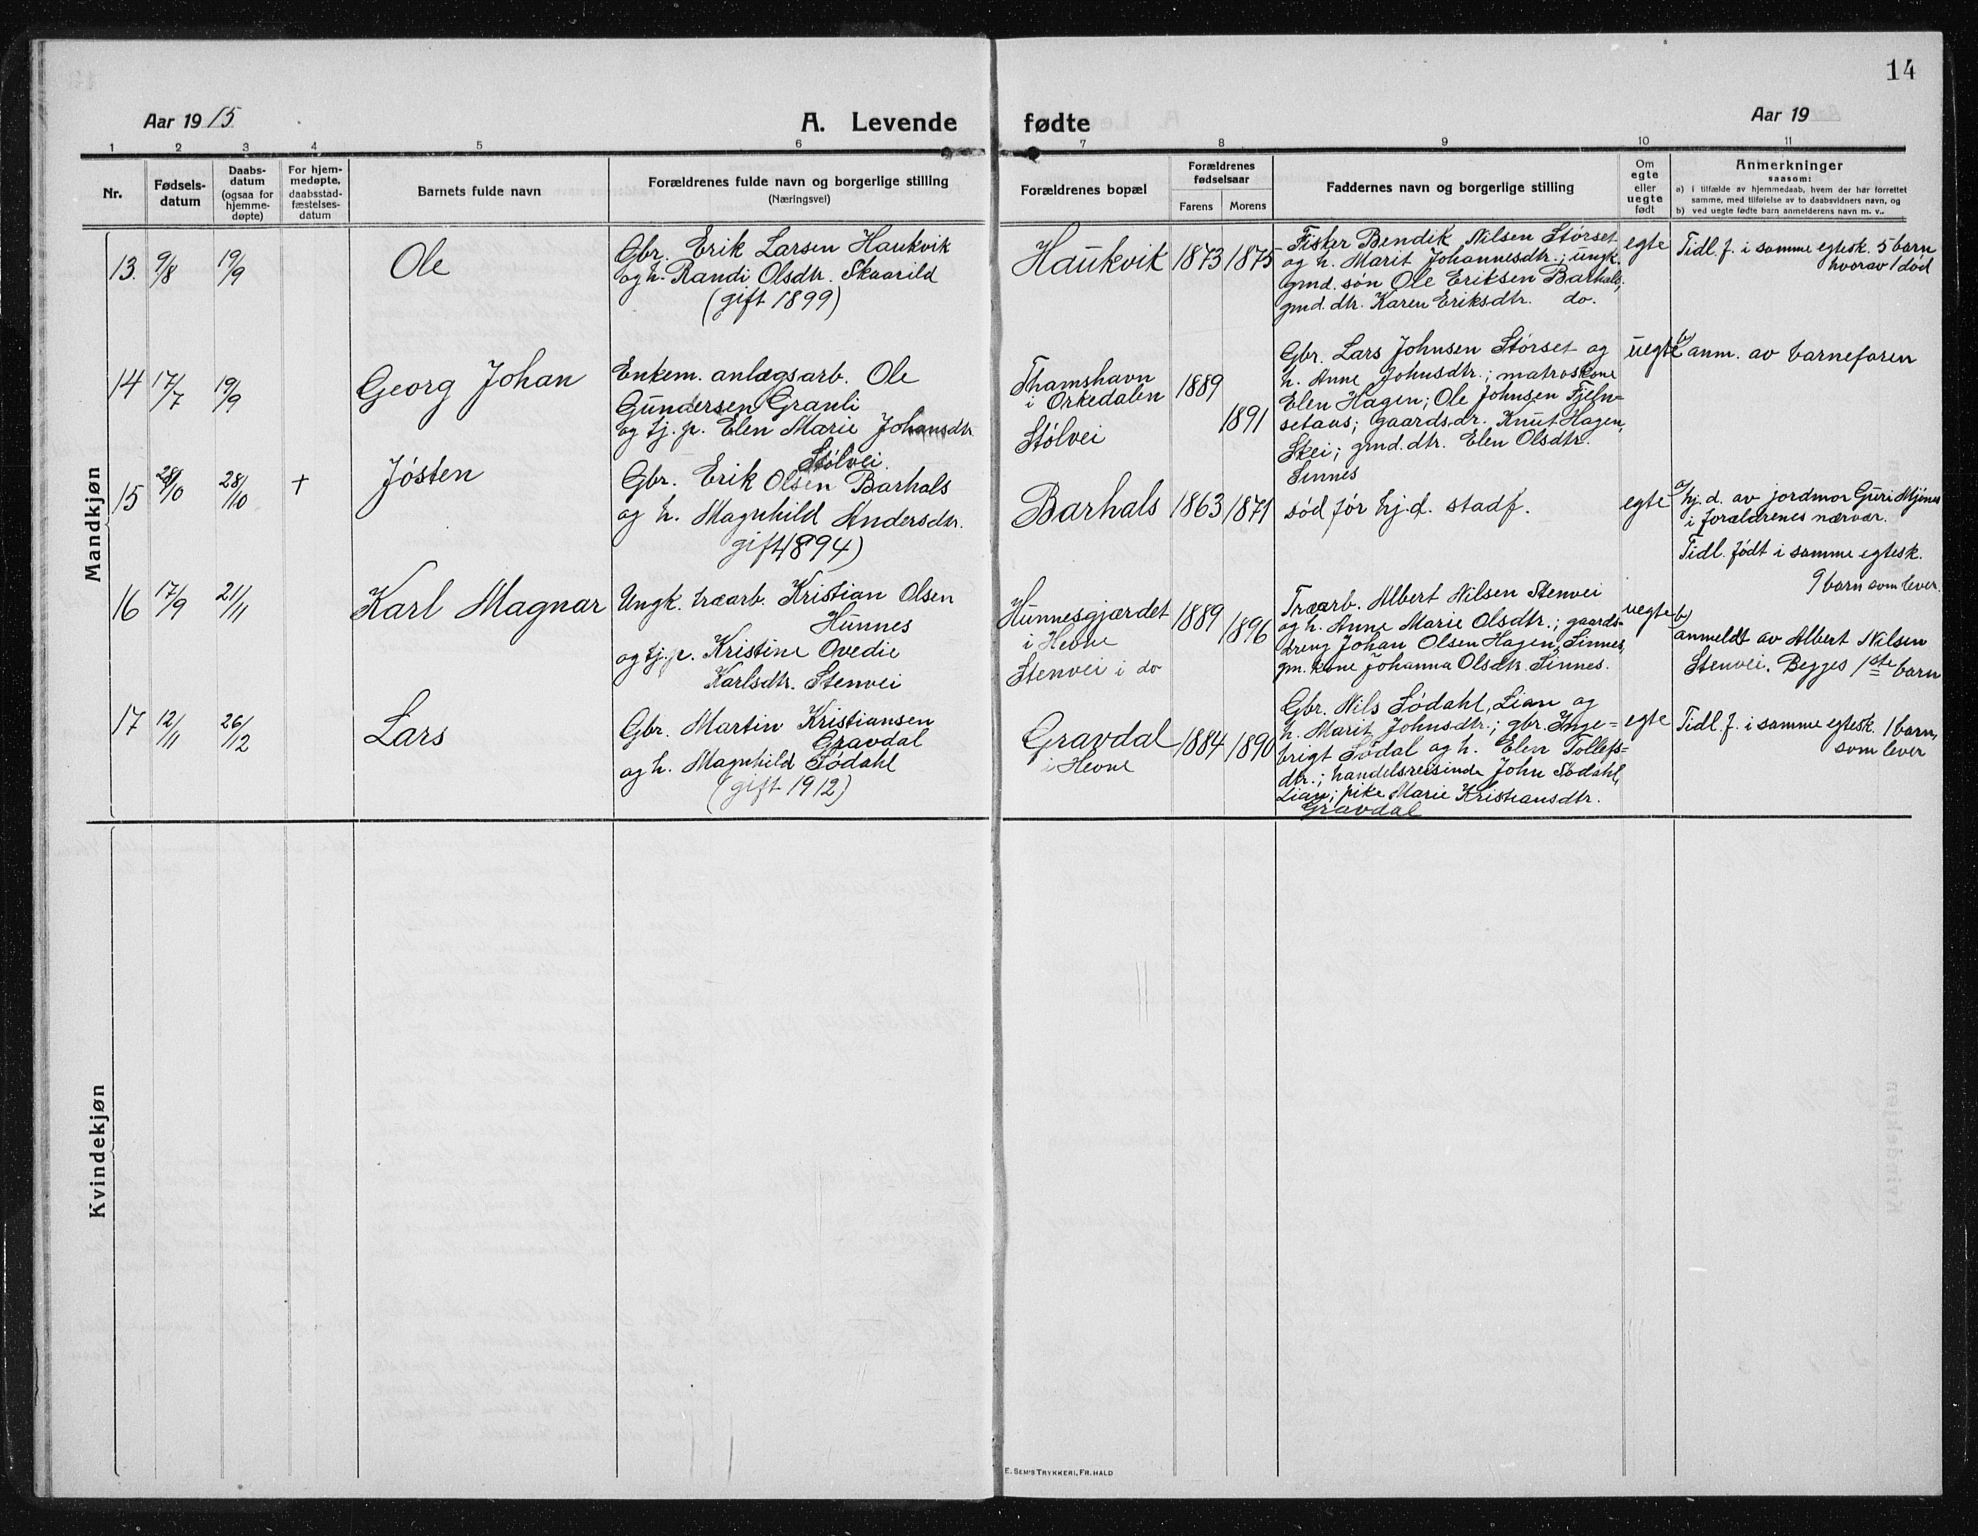 14
Aar 1915
A. Levende fødte
Aar 19
1 2 3 4 5 6 7 8 9 10 11
Nr.
Fødsels-
datum
Daabs-
datum
(ogsaa for
hjemme-
døpte)
For hjem-
medøpte,
daabsstad-
fæstelses-
datum
Barnets fulde navn
Forældrenes fulde navn og borgerlige stilling
(Næringsvei)
Forældrenes bopæl
Forældrenes
fødselsaar
Farens Morens
Faddernes navn og borgerlige stilling
Om
egte
eller
uegte
født
Anmerkninger
saasom:
a) i tilfælde av hjemmedaab, hvem der har forrettet
samme, med tilføielse av to daabsvidners navn, og
b) ved uegte fødte barn anmelderens navn m. v..
Mandkjøn
13. 9/8 19/9
Ole
Gbr. Erik Larsen Haukvik
og h. Randi Olsdtr. Skaarild
(gift 1899)
Haukvik 1873 1875
Fisker Bendik Nilsen Størset
og h. Marit Johannesdtr.; ungk.
gmd. søn Ole Eriksen Barhals;
gmd. dtr. Karen Eriksdtr. do.
egte
Tidl. f. i samme egtesk. 5 barn
hvorav 1 død
14 17/7 19/9
Georg Johan
Enkem. anlægsarb. Ole
Gundersen Granli
og tj. p. Elen Marie Johansdtr.
Stølvei.
Thamshavn
i Orkedalen
Stølvei
1889
1891
Gbr. Lars Johnsen Størset og
h. Anne Johnsdtr.; matroskone
Elen Hagen; Ole Johnsen Fjeln-
setaas; gaardsdr. Knut Hagen,
Skei; gmd. dtr. Elen Olsdtr.
Sinnes
uegte
b) anm. av barnefaren
15 28/10 28/10 +
Jósten
Gbr. Erik Olsen Barhals
og h. Magnhild Andersdtr.
gift 1894)
Barhals 1863 1871
død før hj.d. stadf.
egte
a) hj. d. av jordmor Guri Mjønes
i forældrenes nærvær.
Tidl. født i samme egtesk.
9 barn som lever.
16 17/9 21/11
Karl Magnar
Ungk. træarb. Kristian Olsen
Hunnes
og tj. p. Kristine Ovedie
Karlsdtr. Stenvei
Hunnesgjærdet
i Hevne
Stenvei i do
1889 1896
Træarb. Albert Nilsen Stenvei
og h. Anne Marie Olsdtr.; gaards-
dreng Johan Olsen Hagen, Sinnes,
gm. kone Johanna Olsdtr. Sinnes.
uegte
b)
anmeldt av Albert Nilsen
Stenvei. Begges 1ste barn
17 12/11 26/12
Lars
Gbr. Martin Kristiansen
Gravdal
og h. Magnhild Sødahl
(gift 1912)
Gravdal
i Hevne
1884 1890
Gbr. Nils Sødahl, Lian og
h. Marit Johnsdtr.; gbr. Inge-
brigt Sødal og h. Elen Tollefs-
dtr.; handelsreisende John Sødahl,
Lian; pike Marie Kristiansdtr.
Gravdal
egte
Tidl. f. i samme egtesk. 1 barn,
som lever
Kvindekjøn
E. SEM'S TRYKKERI, FR. HALD